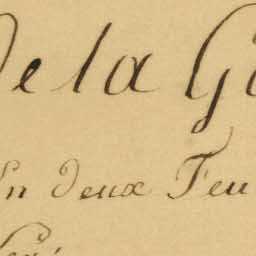 de la G
En deux Feu